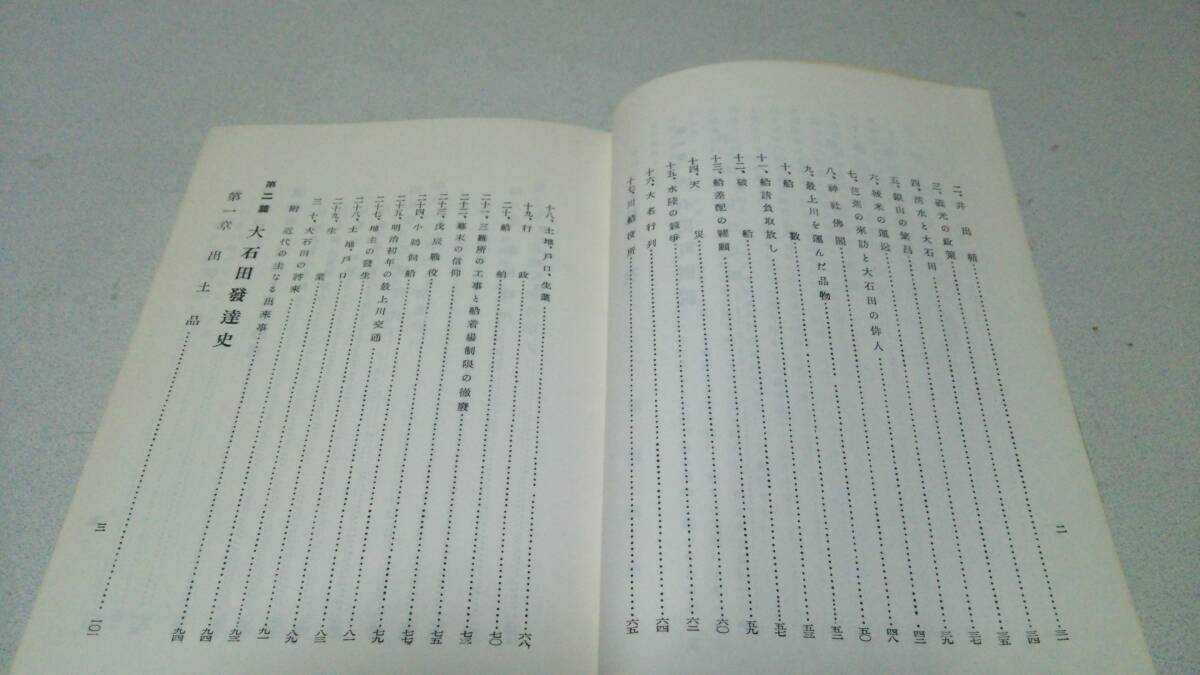 二、井出楯 三一
三、義光の政策 三四
四、水と大石田 三五
五、銀山の繁昌 三七
六、城米の運送 三九
七、芭蕉の來訪と大石田の俳人 四二
八、神社佛閣 四八
九、最上川を運んだ品物 五〇
十、船數 五二
十一、船請負取放し 五三
十二、破船 五七
十三、船差配の罷願 五九
十四、天災 六〇
十五、水陸の競爭 六二
十六、大名行列 六四
十七、川船役所 六五
二
十八、土地、戸口、生業 六八
十九、行政 七〇
二十、船舶 七三
二十一、三難所の工事と船着場制限の徹廢 七五
二十二、幕末の信仰 七七
二十三、戊辰戰役 七九
二十四、小鵜飼船 八一
二十五、明治初年の最上川交通 八三
二十七、地主の發生 八九
二十八、土地、戸口 九一
二十九、生業 九三
三十、大石田の將來 九四
附 近代の主なる出來事 九四
第二篇 大石田發達史
第一章 出土品 一〇一
三